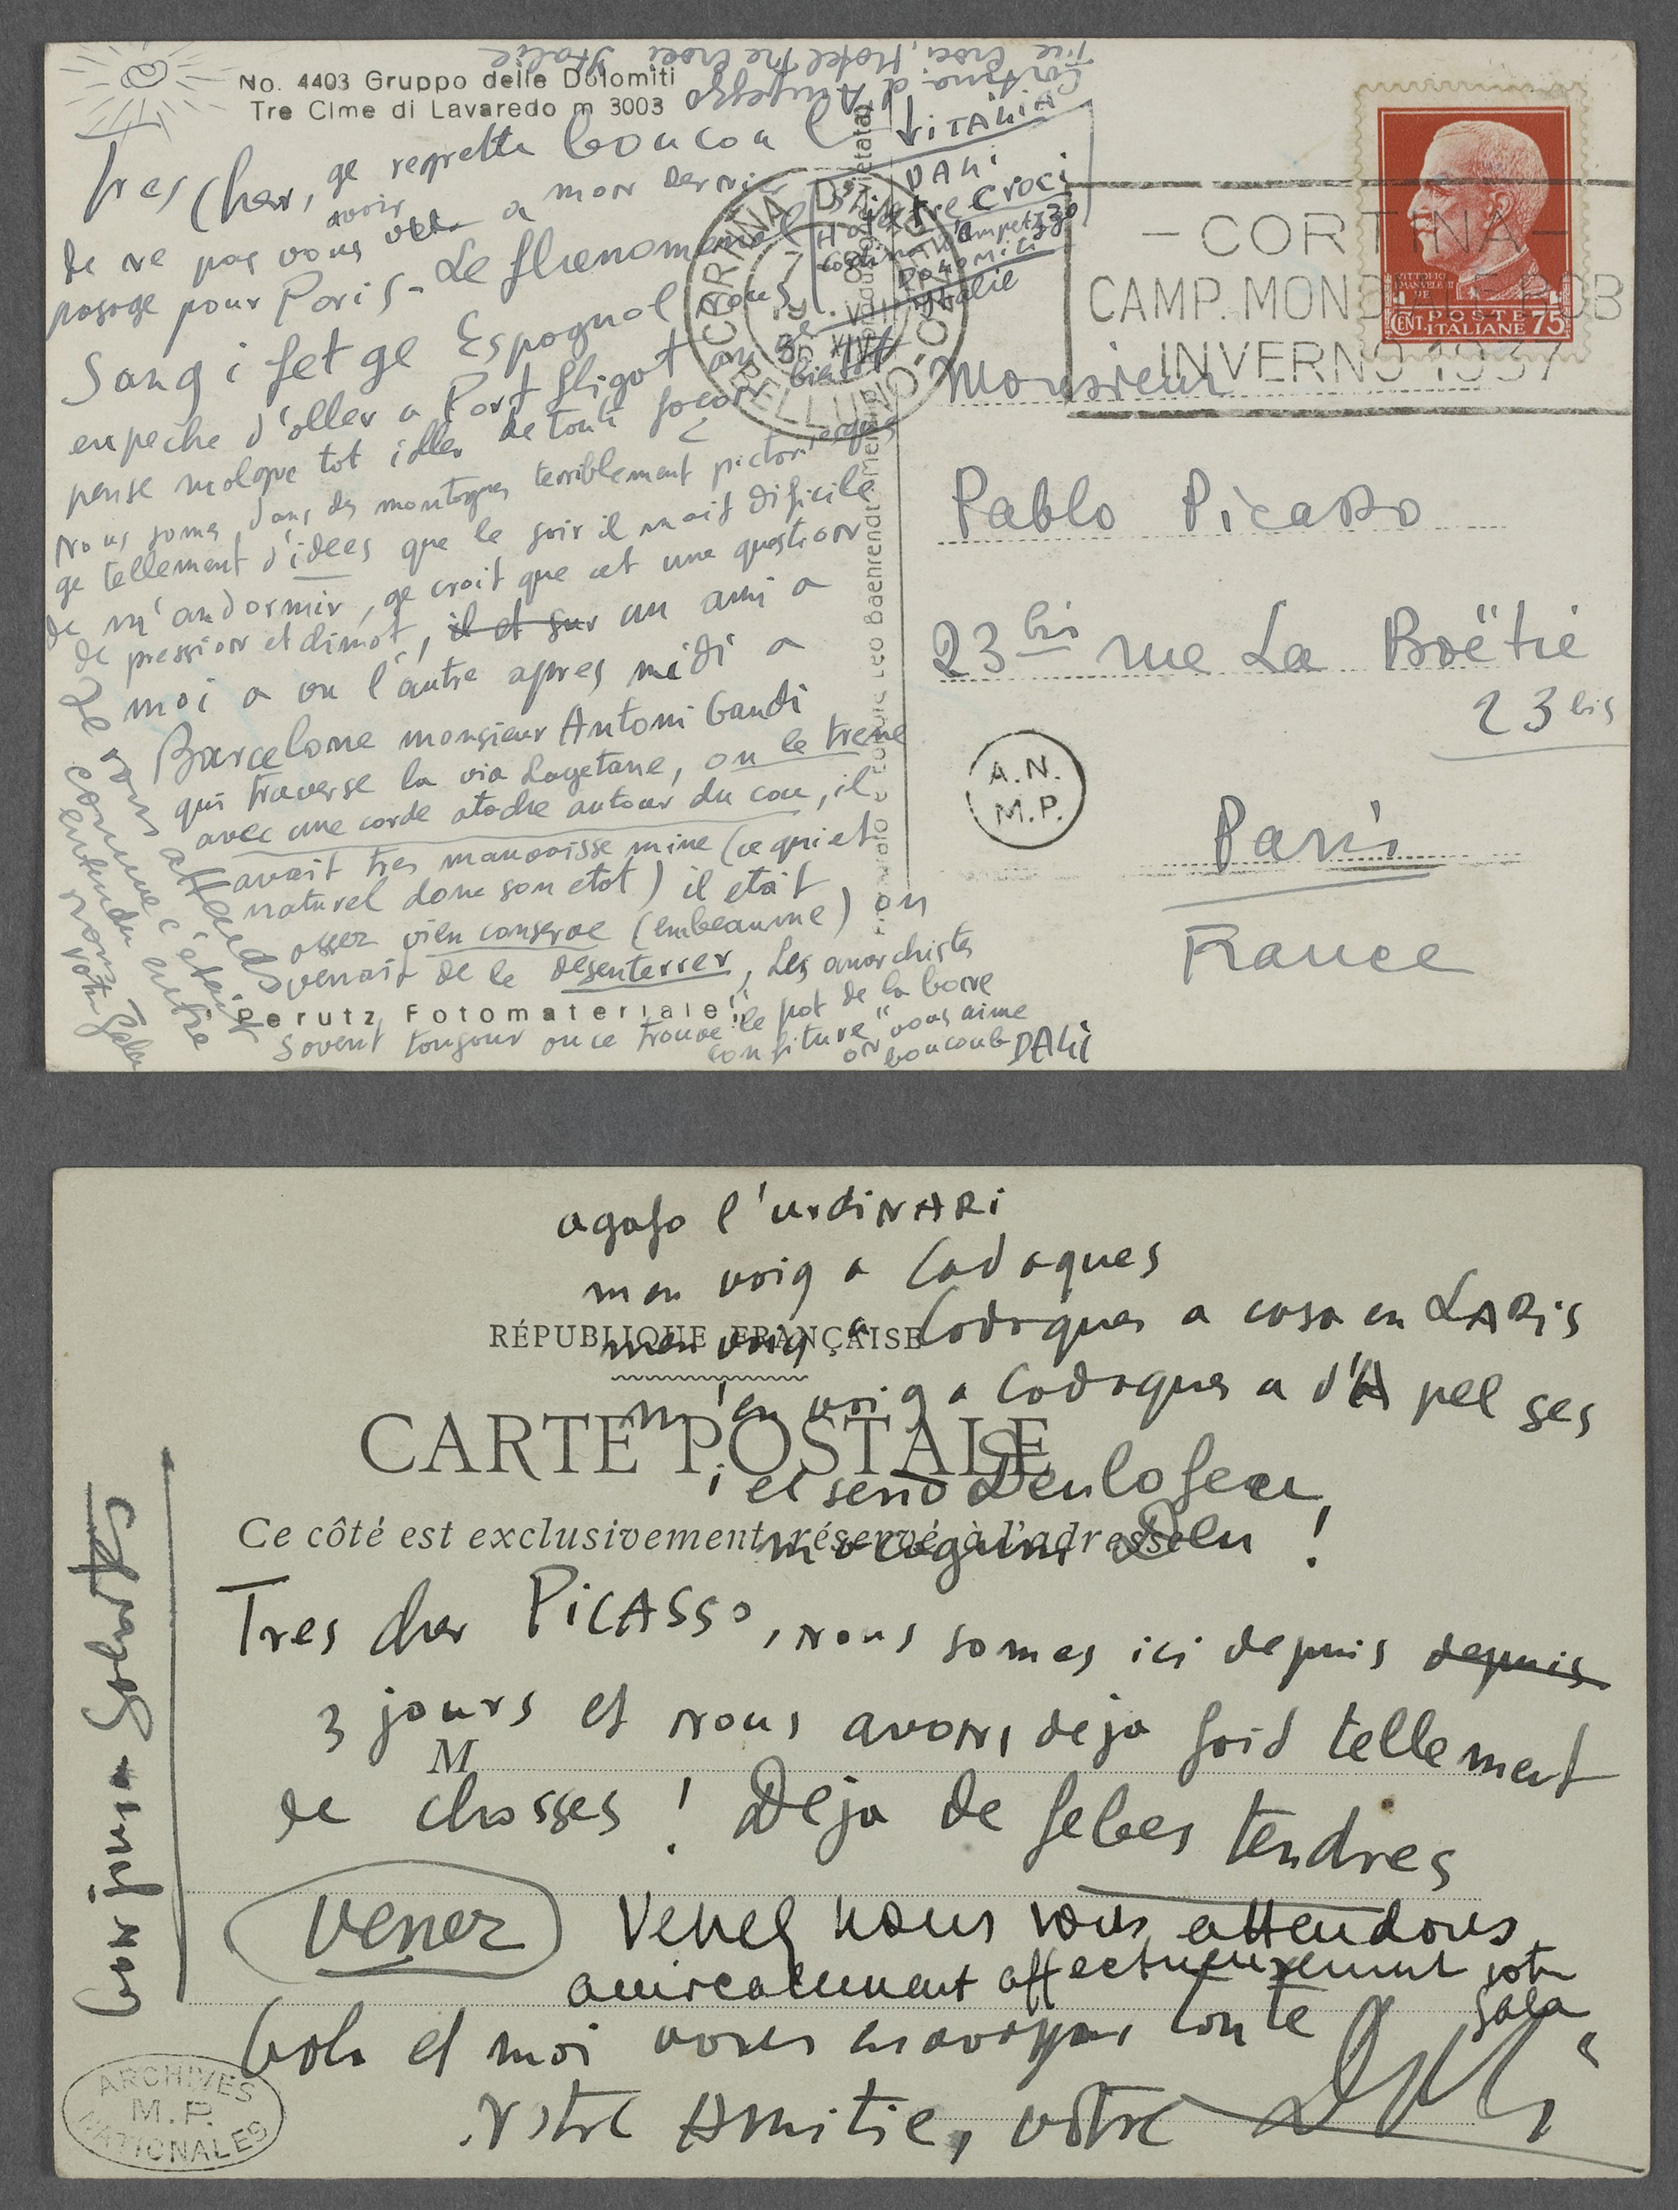 No. 4403 Gruppo delle Dolomiti
Tre Cime di Lavaredo m 3003
Cortina d'Ampezzo
Tre Croci, Hotel Tre Croci Italie
Tres cher, ge regrette boucou
de ne pas vous avoir a mon dernier
pasage pour Paris - Le fhenomenal
Sang i fet ge Espagnol nous
enpeche d'aller a Port Lligat au
pense malgre tot iller de tout bientot
Nous somes dans des montagnes terriblement pictoriesques
ge tellement d'idees que le soir il mait dificile
de m'andormir, ge croit que cet une question
de pression et dimat, il et sur un ami a
moi a vu l'autre apres midi a
Barcelone monsieur Antoni Gaudi
qui traverse la via Layetane, on le trene
avec une corde atache autour du cou, il
avait tres mauvaisse mine (ce qui et
naturel dans son etat) il etait
assez vien conserve (embeaume) on
venait de le desenterrer, Les anarchistes
Sovent toujour ou ce trouve "le pot de la bone
confiture" on vous aime
boucoub DALi
Je vous attends
comme c'etait
entendu entre
nous
votre Gala
Perutz Fotomateriale!
iTALiA
DALi
Hotel tre Croci
Cortina d'Ampetzzo
DOLOMiTi
Italie
CORTINA D'AMPEZZO
BELLUNO
- CORTINA -
CAMP. MONDIALE BOB
INVERNO 1937
VITTORIO EMANUELE III RE
POSTE ITALIANE
CENT. 75
Monsieur
Pablo Picasso
23 bis rue La Boëtie
23 bis
Paris
France
A.N.
M.P.
agafo l'urdiNARi
men voig a Cadaques
RÉPUBLIQUE FRANÇAISE
men voig a Cadaques a casa en LARis
m'en voig a Cadaques a d'A pel ges
CARTE POSTALE
i el seño Deulofeu
Ce côté est exclusivement réservé à l'adresse
Deu !
Tres cher PiCASSo, nous somes ici depuis depuis
3 jours et nous avons deja faid tellement
M
de chosses ! Deja de febes tendres
venez Venez nous vous attendons
amicalement affectueusement votre
Gala
Gala et moi vous envoyons toute
Notre Amitie, votre Dali
bon jour a Sabartes
ARCHIVES
M.P.
NATIONALES